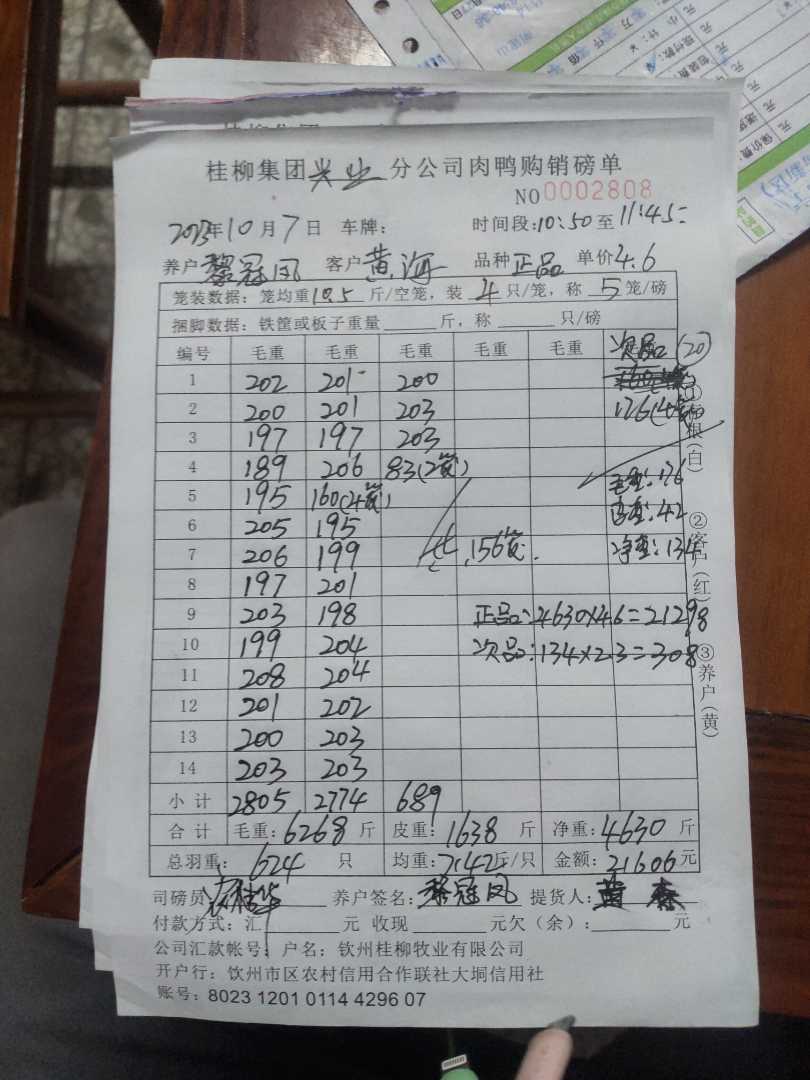 桂柳集团兴业分公司肉鸭购销磅单
NO 0002808
2023年10月7日 车牌: 时间段:10:50至11:45
养户 黎冠凤 客户 黄海 品种 正品 单价4.6
笼装数据:笼均重10.5斤/空笼,装4只/笼,称5笼/磅
捆脚数据:铁筐或板子重量 斤,称 只/磅
编号 毛重 毛重 毛重 毛重 毛重 次品 (20)
1 202 201 200
2 200 201 203 126(4笼)
3 197 197 203
4 189 206 83(2笼)
5 195 160(4笼) 毛重:176
6 205 195 皮重:42
7 206 199 共 156笼. 净重:134
8 197 201
9 203 198 正品:4630×4.6=21298
10 199 204 次品:134×2.3=308
11 208 204
12 201 202
13 200 203
14 203 203
小计 2805 2774 689
合计 毛重:6268斤 皮重:1638斤 净重:4630斤
总羽重: 624 只 均重:7.42斤/只 金额:21606元
司磅员: 养户签名:黎冠凤 提货人:
付款方式:汇 元 收现 元欠(余): 元
公司汇款帐号:户名:钦州桂柳牧业有限公司
开户行:钦州市区农村信用合作联社大垌信用社
账号:8023 1201 0114 4296 07
①存根(白)
②客户(红)
③养户(黄)